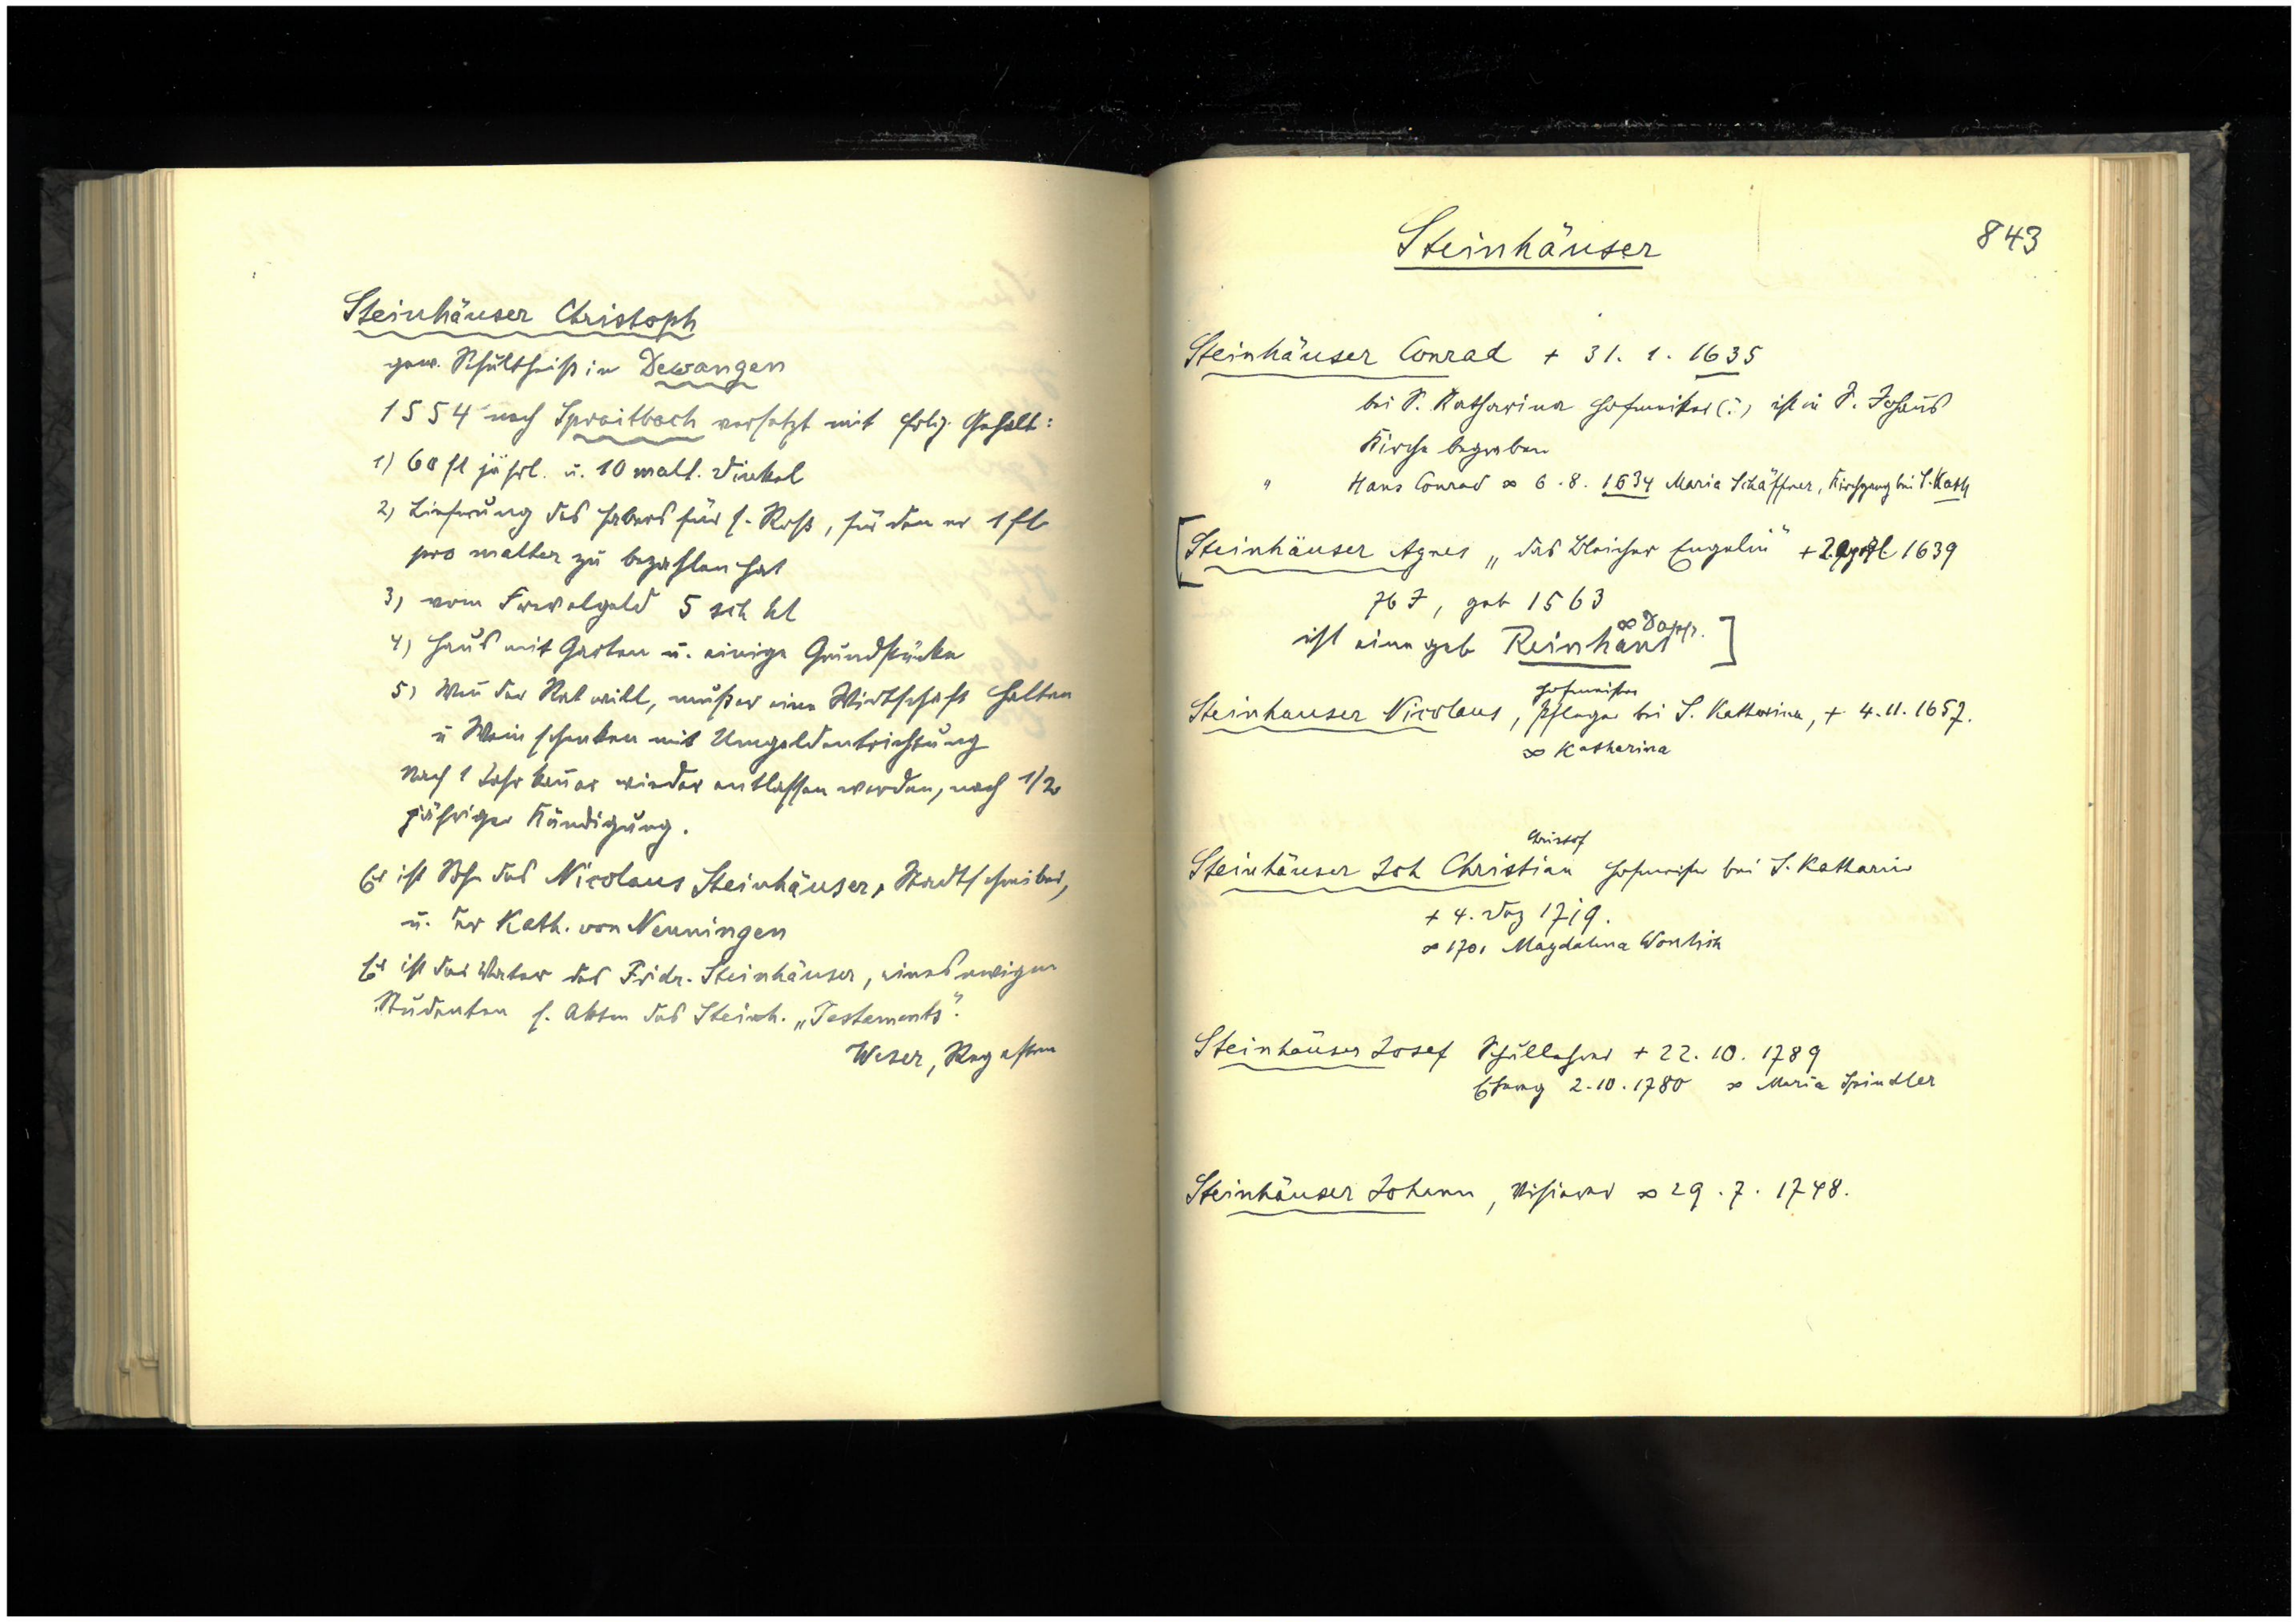 Steinhäuser Christoph
gew. Schultheiß in Dewangen
1554 nach Spraitbach versetzt mit folg. Gehalt:
1) 60 fl jährl. u. 10 malt. Dinkel
2) Lieferung des Habers für s. Roß, für den er 1 fl
pro malter zu bezahlen hat
3) vom Frevelgeld 5 sch hl
4) Haus mit Garten u. einige Grundstücke
5) Weñ der Rat will, muß er eine Wirtschaft halten
u Wein schenken mit Umgeldentrichtung
Nach 1 Jahr kañ er wieder entlassen werden, nach 1/2
jähriger Kündigung.
Er ist Sohn des Nicolaus Steinhäuser, Stadtschreiber,
u. der Kath. von Nenningen
Er ist der Vater des Fridr. Steinhäuser, eines ewigen
Studenten s. Akten des Steinh. „Testaments".
Weser, Regesten
843
Steinhäuser
Steinhäuser Conrad + 31. 1. 1635
bei S. Katharina Hofmeister(?), ist in S. Johañs
Kirche begraben
" Hans Conrad ∞ 6. 8. 1634 Maria Schäffner, Kirchgang bei S. Kath
[Steinhäuser Agnes „das Bleicher Engelin" + 1639
76 J, geb 1563
∞ Dapp.
ist eine geb Reinhans ]
Hofmeister
Steinhauser Nicolaus, Pfleger bei S. Katharina, + 4. 11. 1657.
∞ Katharina
Christof
Steinhäuser Joh Christian Hofmeister bei S. Katharin
+ 4. Dez 1719.
∞ 1701 Magdalena
Steinhäuser Josef Schullehrer + 22. 10. 1789
2. 10. 1780 ∞ Maria Spindler
Steinhäuser Johann, Visierer ∞ 29. 7. 1748.